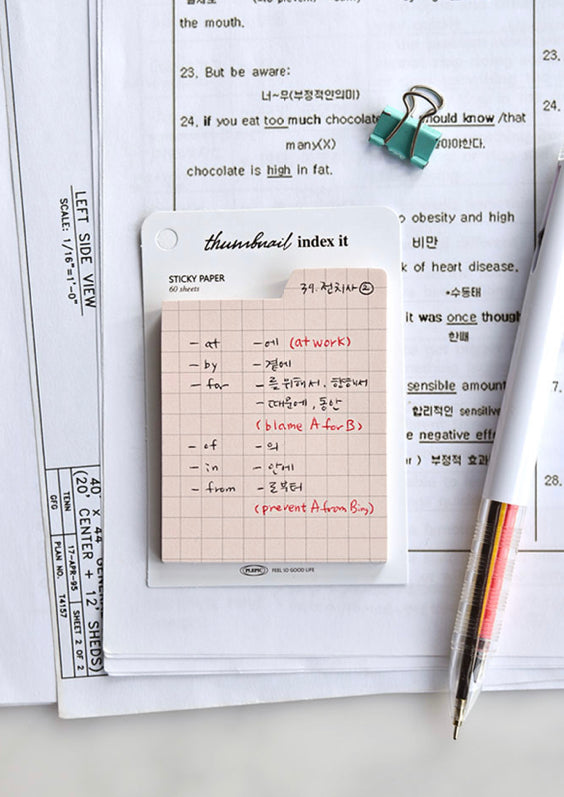 the mouth.
23. But be aware:
너~무(부정적인의미)
24. if you eat too much chocolate
should know /that
many(X)
이야한다.
chocolate is high in fat.
obesity and high
비만
k of heart disease.
•수동태
it was once though
한때
sensible amount
합리적인 sensitive
e negative eff
) 부정적 효과
23.
24.
7.
28.
LEFT SIDE VIEW
SCALE: 1/16"=1'-0"
thumbnail index it
STICKY PAPER
60 sheets
39. 전치사 ②
- at - 에 (at work)
- by - 곁에
- for - 를 위해서, 향해서
- 때문에, 동안
(blame A for B)
- of - 의
- in - 안에
- from - 로부터
(prevent A from Bing)
PLEPIC FEEL SO GOOD LIFE
40' X 44'
(20' CENTER + 12' SHEDS)
TENN
17-APR-95
SHEET 2 OF 2
PLAN NO. T4157